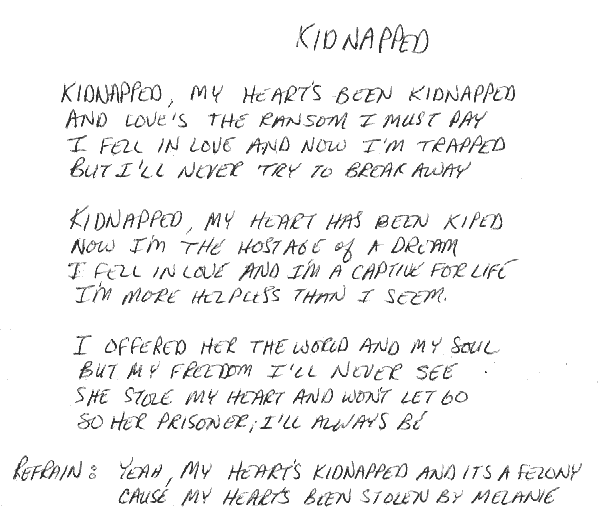 KIDNAPPED
KIDNAPPED, MY HEART'S BEEN KIDNAPPED
AND LOVE'S THE RANSOM I MUST PAY
I FELL IN LOVE AND NOW I'M TRAPPED
BUT I'LL NEVER TRY TO BREAK AWAY
KIDNAPPED, MY HEART HAS BEEN KIPED
NOW I'M THE HOSTAGE of A DREAM
I FELL IN LOVE AND I'M A CAPTIVE FOR LIFE
I'M MORE HELPLESS THAN I SEEM.
I OFFERED HER THE WORLD AND MY SOUL
BUT MY FREEDOM I'LL NEVER SEE
SHE STOLE MY HEART AND WON'T LET GO
SO HER PRISONER, I'LL ALWAYS BE
REFRAIN: YEAH, MY HEART'S KIDNAPPED AND ITS A FELONY
CAUSE MY HEART'S BEEN STOLEN BY MELANIE